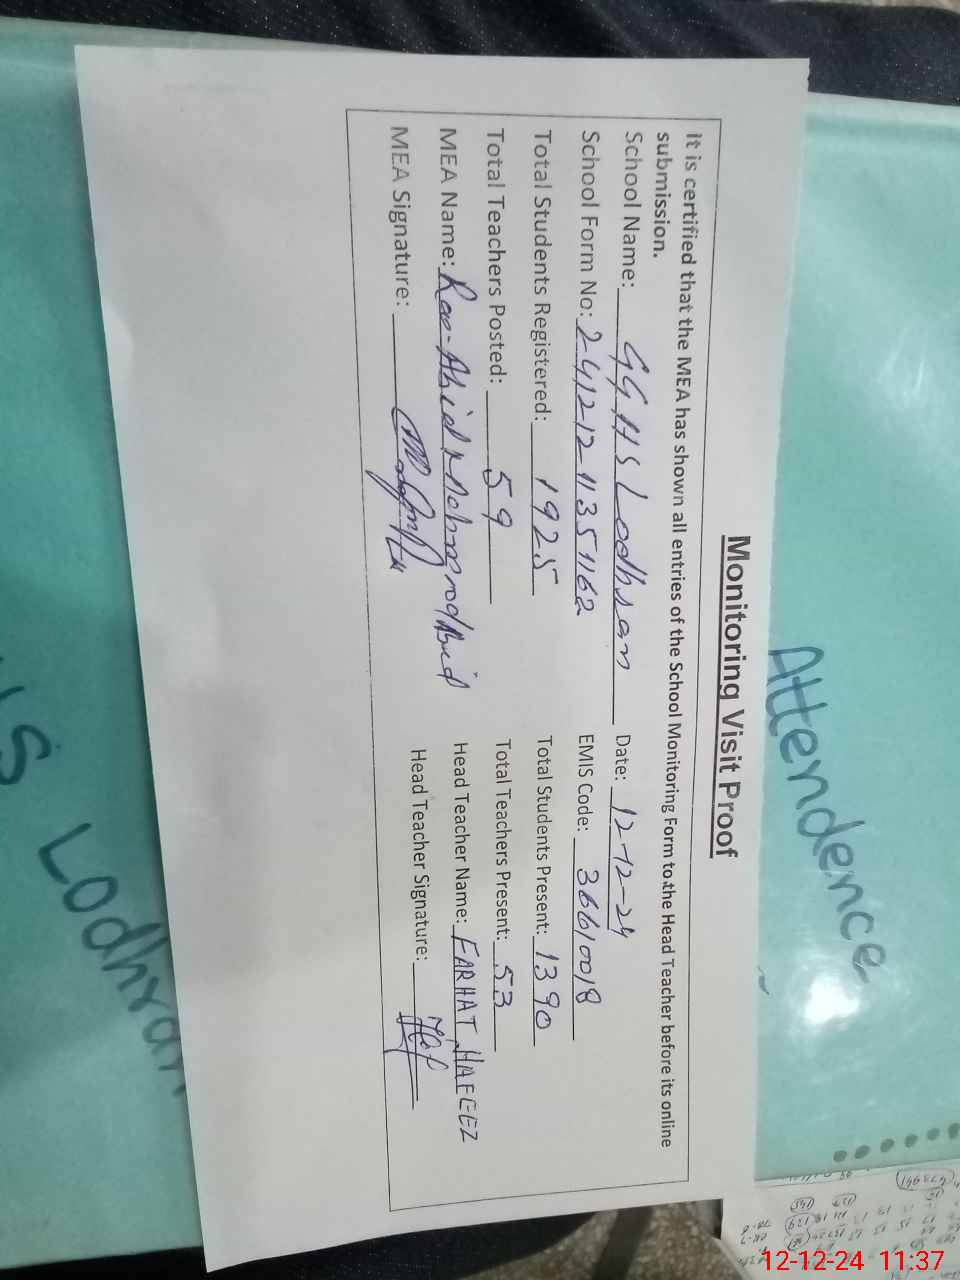 Attendence
Monitoring Visit Proof
It is certified that the MEA has shown all entries of the School Monitoring Form to the Head Teacher before its online
submission.
School Name: GGHS Lodhran Date: 12-12-24
School Form No: 2412-12-11351162 EMIS Code: 36610018
Total Students Registered: 1925 Total Students Present: 1390
Total Teachers Posted: 59 Total Teachers Present: 53
MEA Name: Rao-Abid Mehmood Head Teacher Name: FARHAT HAFEEZ
MEA Signature: Head Teacher Signature:
Lodhran
12-12-24 11:37